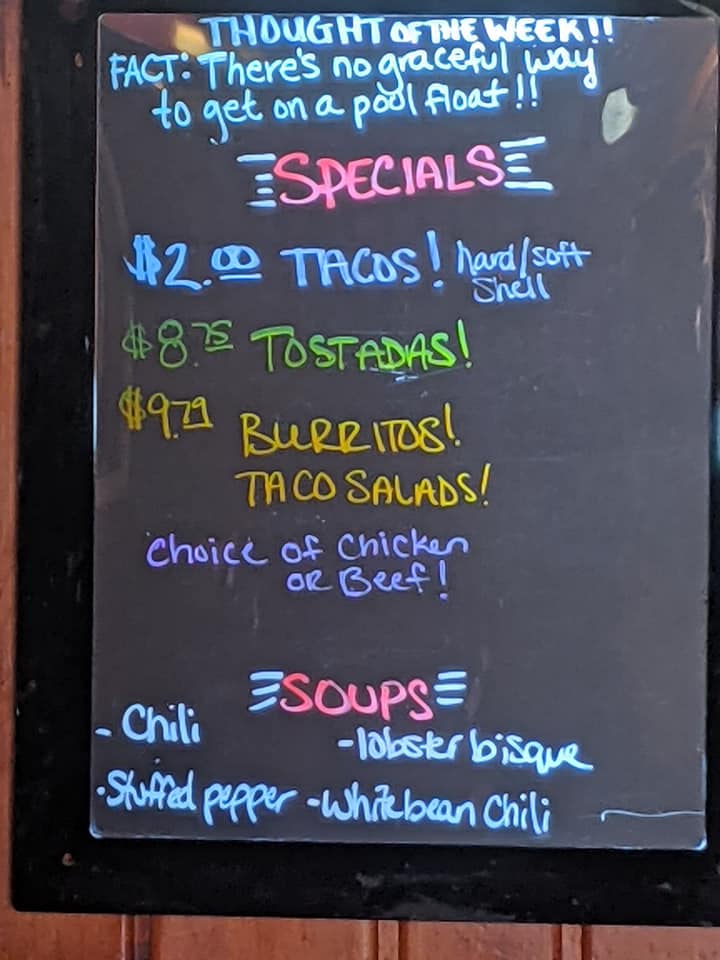 THOUGHT OF THE WEEK!!
FACT: There's no graceful way
to get on a pool float!!
SPECIALS
$2.00 TACOS! hard/soft
Shell
$8.75 TOSTADAS!
$9.79 BURRITOS!
TACO SALADS!
Choice of Chicken
OR Beef!
SOUPS
- Chili
- lobster bisque
- Stuffed pepper - White bean Chili